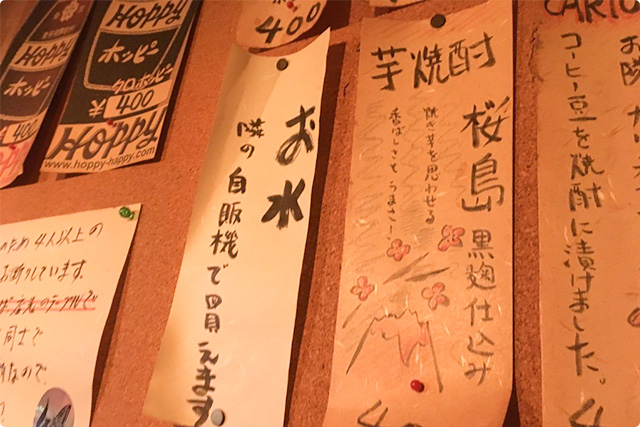 Hoppy
ホッピー
¥400
Hoppy
ホッピー
クロホッピー
¥400
Hoppy
www.hoppy-happy.com
400
お水
隣の自販機で買えます。
芋焼酎
桜島 黒麹仕込み
焼き芋を思わせる
香ばしさとうまさー!
コーヒー豆を焼酎に漬けました。
ため4人以上の
お断りしています。
同士で
なので。